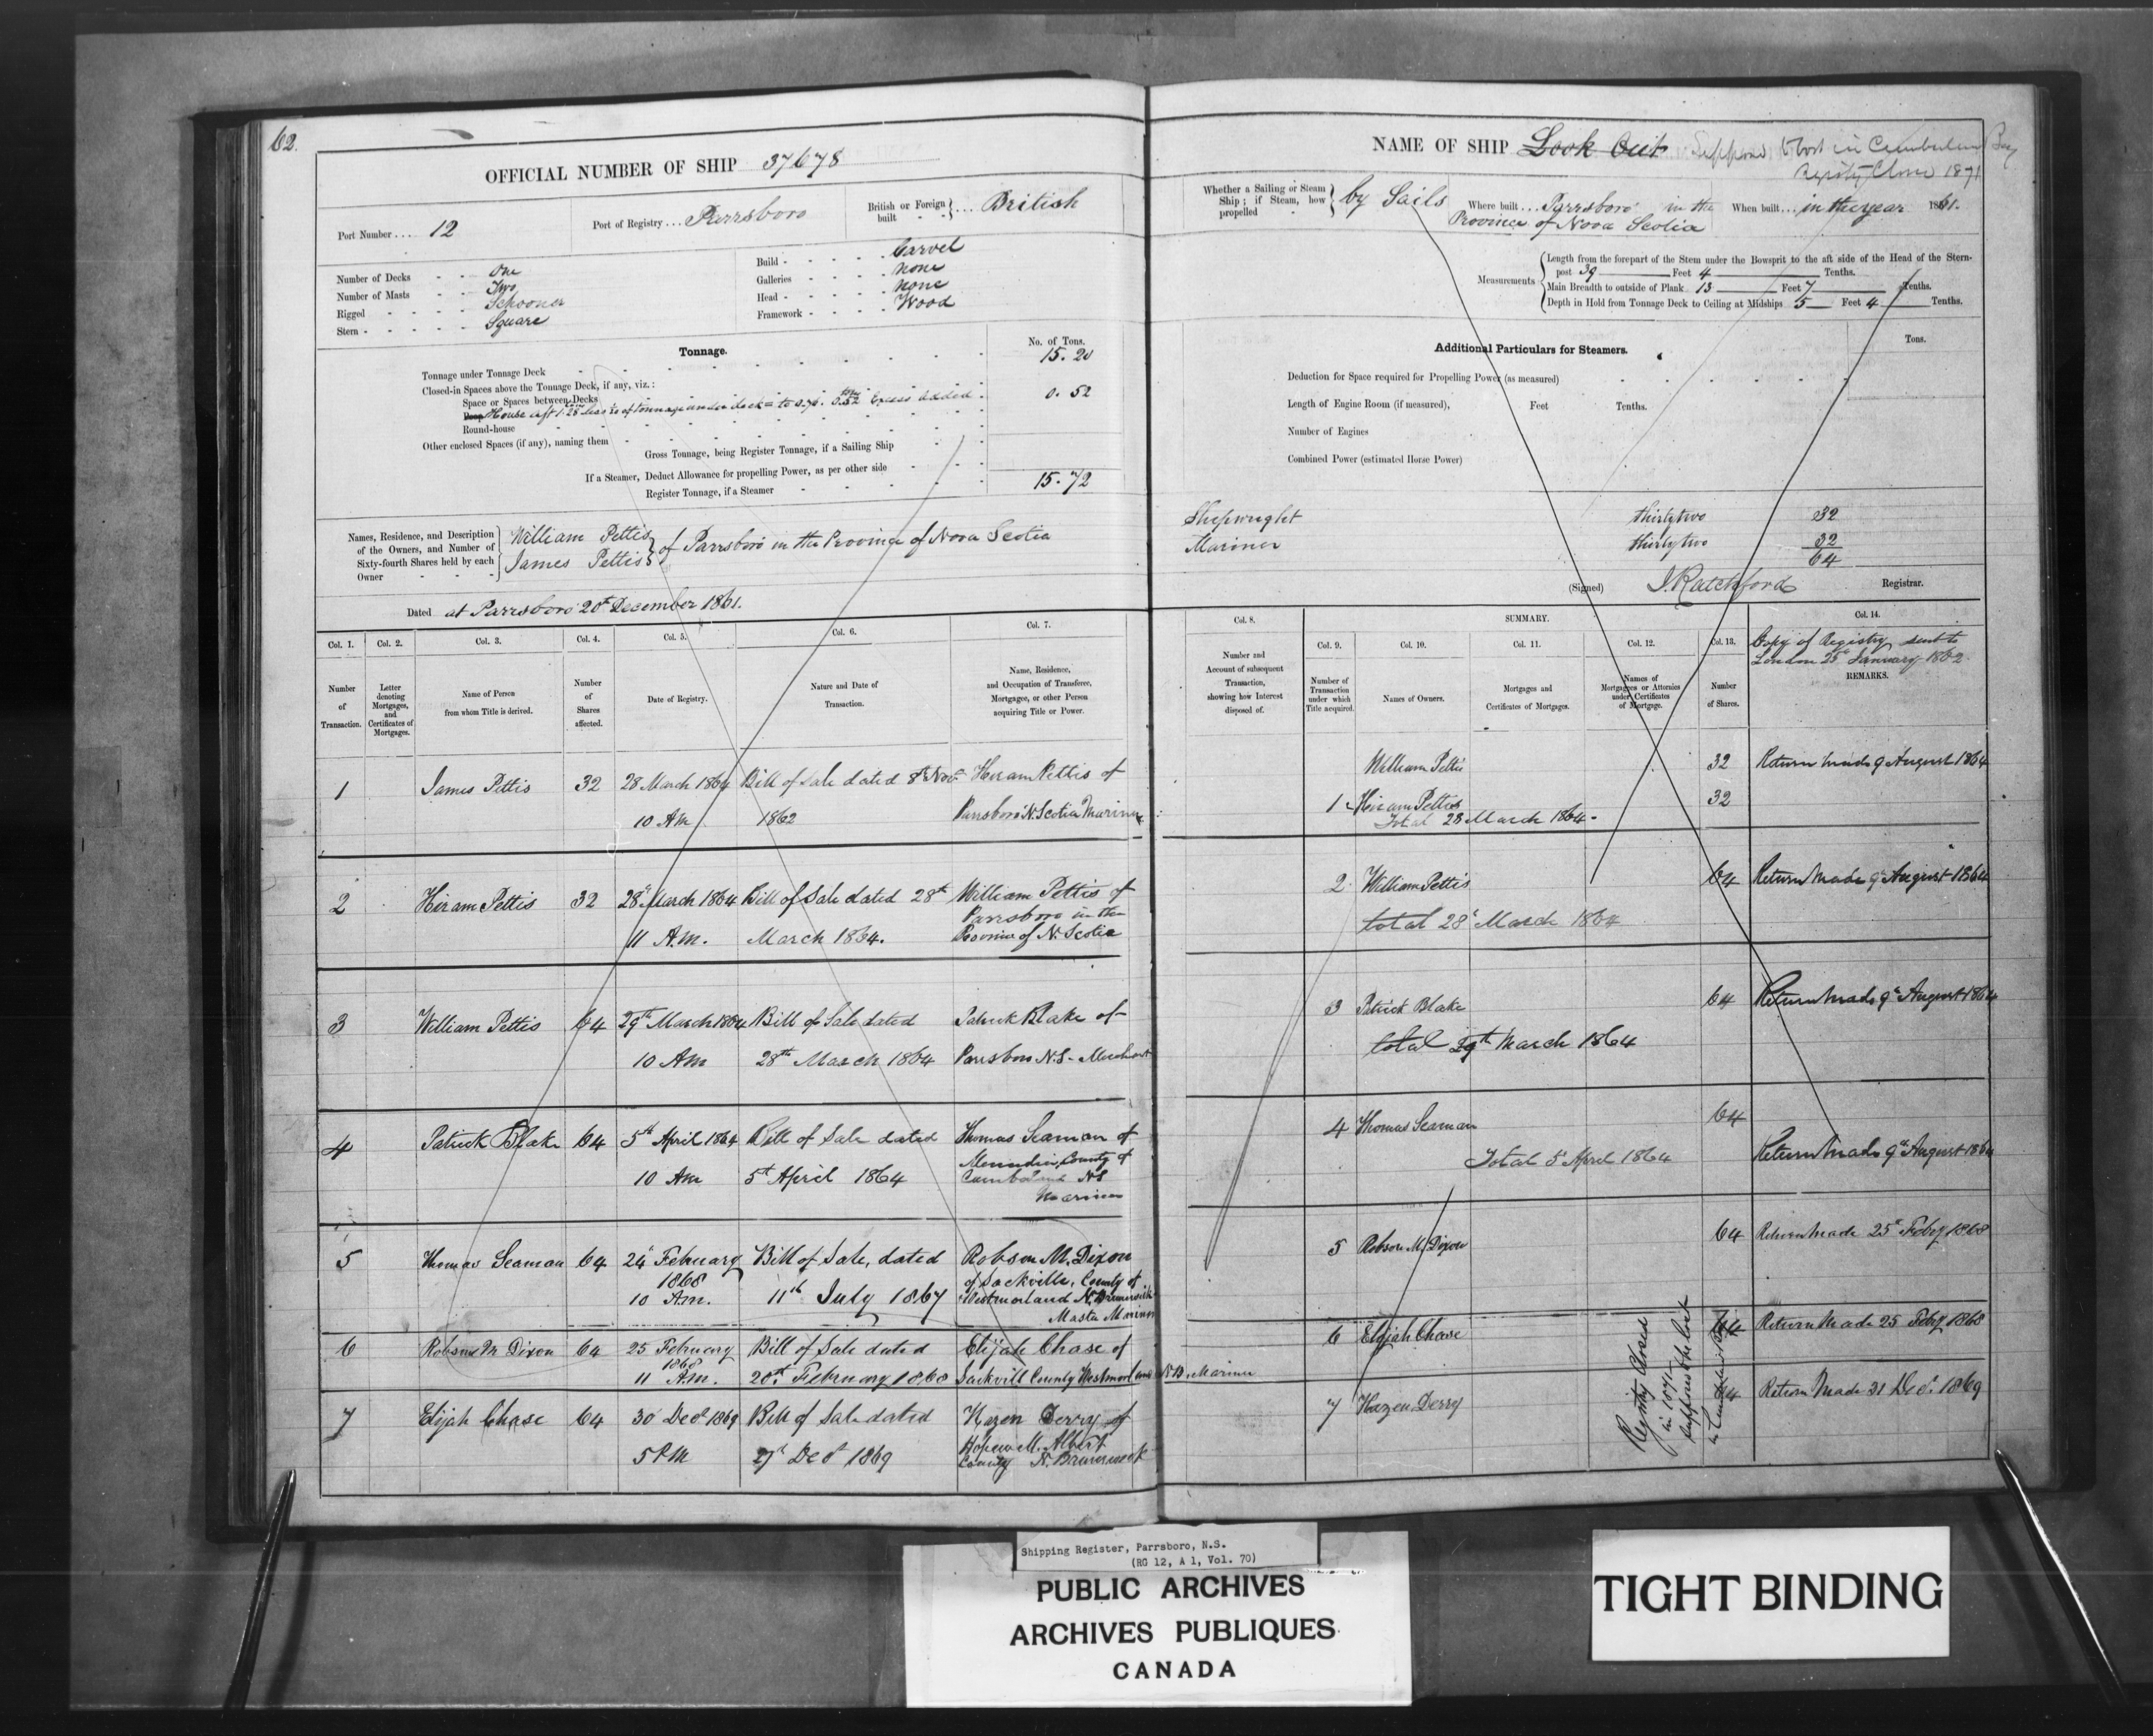 62.
OFFICIAL NUMBER OF SHIP 37678
Port Number.... 12
Port of Registry... Parrsboro
British or Foreign built ... British
Number of Decks - - One
Number of Masts - - Two
Rigged - - - - - Schooner
Stern - - - - - - Square
Build - - - - - Carvel
Galleries - - - - none
Head - - - - - none
Framework - - - - Wood
Tonnage.
No. of Tons.
Tonnage under Tonnage Deck 15.20
Closed-in Spaces above the Tonnage Deck, if any, viz.:
Space or Spaces between Decks
House aft 1.28 less of tonnage under deck = to 0.76. 0.52 Excess added. 0.52
Round-house
Other enclosed Spaces (if any), naming them
Gross Tonnage, being Register Tonnage, if a Sailing Ship
If a Steamer, Deduct Allowance for propelling Power, as per other side
Register Tonnage, if a Steamer 15.72
Names, Residence, and Description of the Owners, and Number of Sixty-fourth Shares held by each Owner
William Pettis
James Pettis
of Parrsboro in the Province of Nova Scotia
Dated at Parrsboro 20th December 1861.
Col. 1. Col. 2. Col. 3. Col. 4. Col. 5. Col. 6. Col. 7.
Number of Transaction.
Letter denoting Mortgages, and Certificates of Mortgages.
Name of Person from whom Title is derived.
Number of Shares affected.
Date of Registry.
Nature and Date of Transaction.
Name, Residence, and Occupation of Transferee, Mortgagee, or other Person acquiring Title or Power.
1 James Pettis 32 28 March 1864 Bill of Sale dated 8th Nov. Hiram Pettis of
10 AM 1862 Parrsboro N. Scotia Mariner
2 Hiram Pettis 32 28th March 1864 Bill of Sale dated 28th William Pettis of
Parrsboro in the
11 A.M. March 1864. Province of N. Scotia
3 William Pettis 64 29th March 1864 Bill of Sale dated Patrick Blake of
10 AM 28th March 1864 Parrsboro N.S. Merchant
4 Patrick Blake 64 5th April 1864 Bill of Sale dated Thomas Seaman of
County of
10 AM 5th April 1864 NS
Mariner
5 Thomas Seaman 64 24th February Bill of Sale, dated Robson M. Dixon
1868 of Sackville, County of
10 A.M. 11th July 1867 Westmorland N. Brunswick
Master Mariner
6 Robson M Dixon 64 25 February Bill of Sale dated Elijah Chase of
1868
11 A.M. 20th February 1868 Sackvill County Westmorland N B. Mariner
7 Elijah Chase 64 30 Decr 1869 Bill of Sale dated Hazen Derry of
Hopewell, Albert
5 PM Decr 1869 County N. Brunswick
NAME OF SHIP Look Out Suppose to lost in Cumberland Bay
Registry Close 1871
Whether a Sailing or Steam Ship; if Steam, how propelled - by Sails
Where built ... Parrsboro in the
Province of Nova Scotia
When built... in the year 1861.
Measurements
Length from the forepart of the Stem under the Bowsprit to the aft side of the Head of the Stern-
post 39 Feet 4 Tenths.
Main Breadth to outside of Plank 13 Feet 7 Tenths.
Depth in Hold from Tonnage Deck to Ceiling at Midships 5 Feet 4 Tenths.
Additional Particulars for Steamers.
Tons.
Deduction for Space required for Propelling Power (as measured)
Length of Engine Room (if measured), Feet Tenths.
Number of Engines
Combined Power (estimated Horse Power)
Shipwright thirty two 32
Mariner thirty two 32
64
(Signed) J. Ratchford Registrar.
Col. 8. SUMMARY. Col. 14.
Col. 9. Col. 10. Col. 11. Col. 12. Col. 13.
Copy of Registry sent to
London 25th January 1862.
REMARKS.
Number and Account of subsequent Transaction, showing how Interest disposed of.
Number of Transaction under which Title acquired.
Names of Owners.
Mortgages and Certificates of Mortgages.
Names of Mortgagees or Attornies under Certificates of Mortgage.
Number of Shares.
William Pettis 32 Return made 9 August 1864
1 Hiram Pettis 32
Total 28 March 1864
2 William Pettis 64 Return Made 9th August 1864
total 28th March 1864
3 Patrick Blake 64 Return Made 9th August 1864
total 29th March 1864
4 Thomas Seaman 64
Total 5th April 1864 Return Made 9th August 1864
5 Robson M. Dixon 64 Return made 25th Feby 1868
6 Elijah Chase 64 Return Made 25 Feby 1868
7 Hazen Derry 64 Return Made 31 Decr 1869
Registry Closed
in 1871
supposed to be lost
Shipping Register, Parrsboro, N.S.
(RG 12, A 1, Vol. 70)
PUBLIC ARCHIVES
ARCHIVES PUBLIQUES
CANADA
TIGHT BINDING